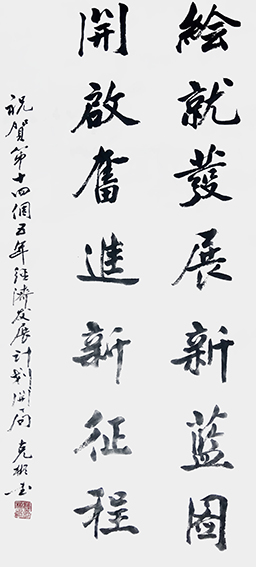 繪就發展新藍圖
開啟奮進新征程
祝賀第十四個五年經濟发展計划開局 克彬書